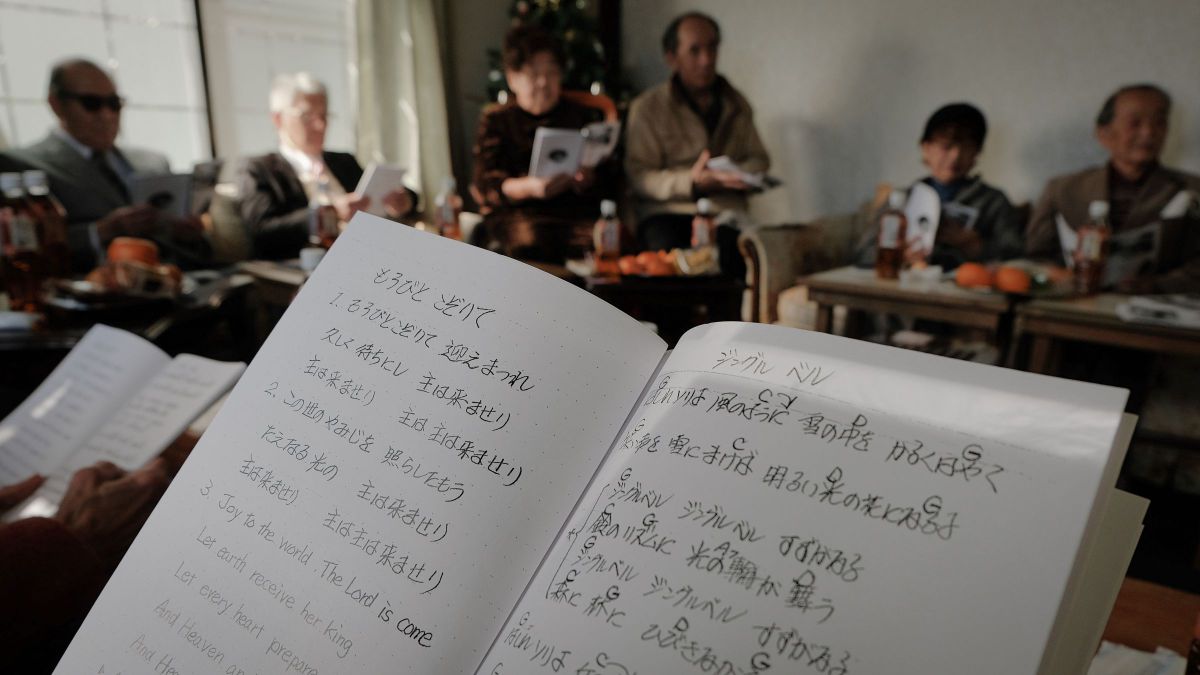 もろびと こぞりて
1. もろびとこぞりて 迎えまつれ
久しく 待ちにし 主は来ませり
主は来ませり 主は主は来ませり
2. この世のやみじを 照らしたもう
たえなる光の 主は来ませり
主は来ませり 主は主は来ませり
3. Joy to the world, The Lord is come
Let earth receive her king
Let every heart prepare
And Heaven an
And He
ジングル ベル
G C D G
風のように 雪の中を かるくはやく
G C D G
雪にまけば 明るい光の花になるよ
G
ジングルベル ジングルベル すずがなる
C G A7 D
鈴のリズムに 光の輪が 舞う
G
ジングルベル ジングルベル すずがなる
C G D G
森に 林に ひびきながら
G C